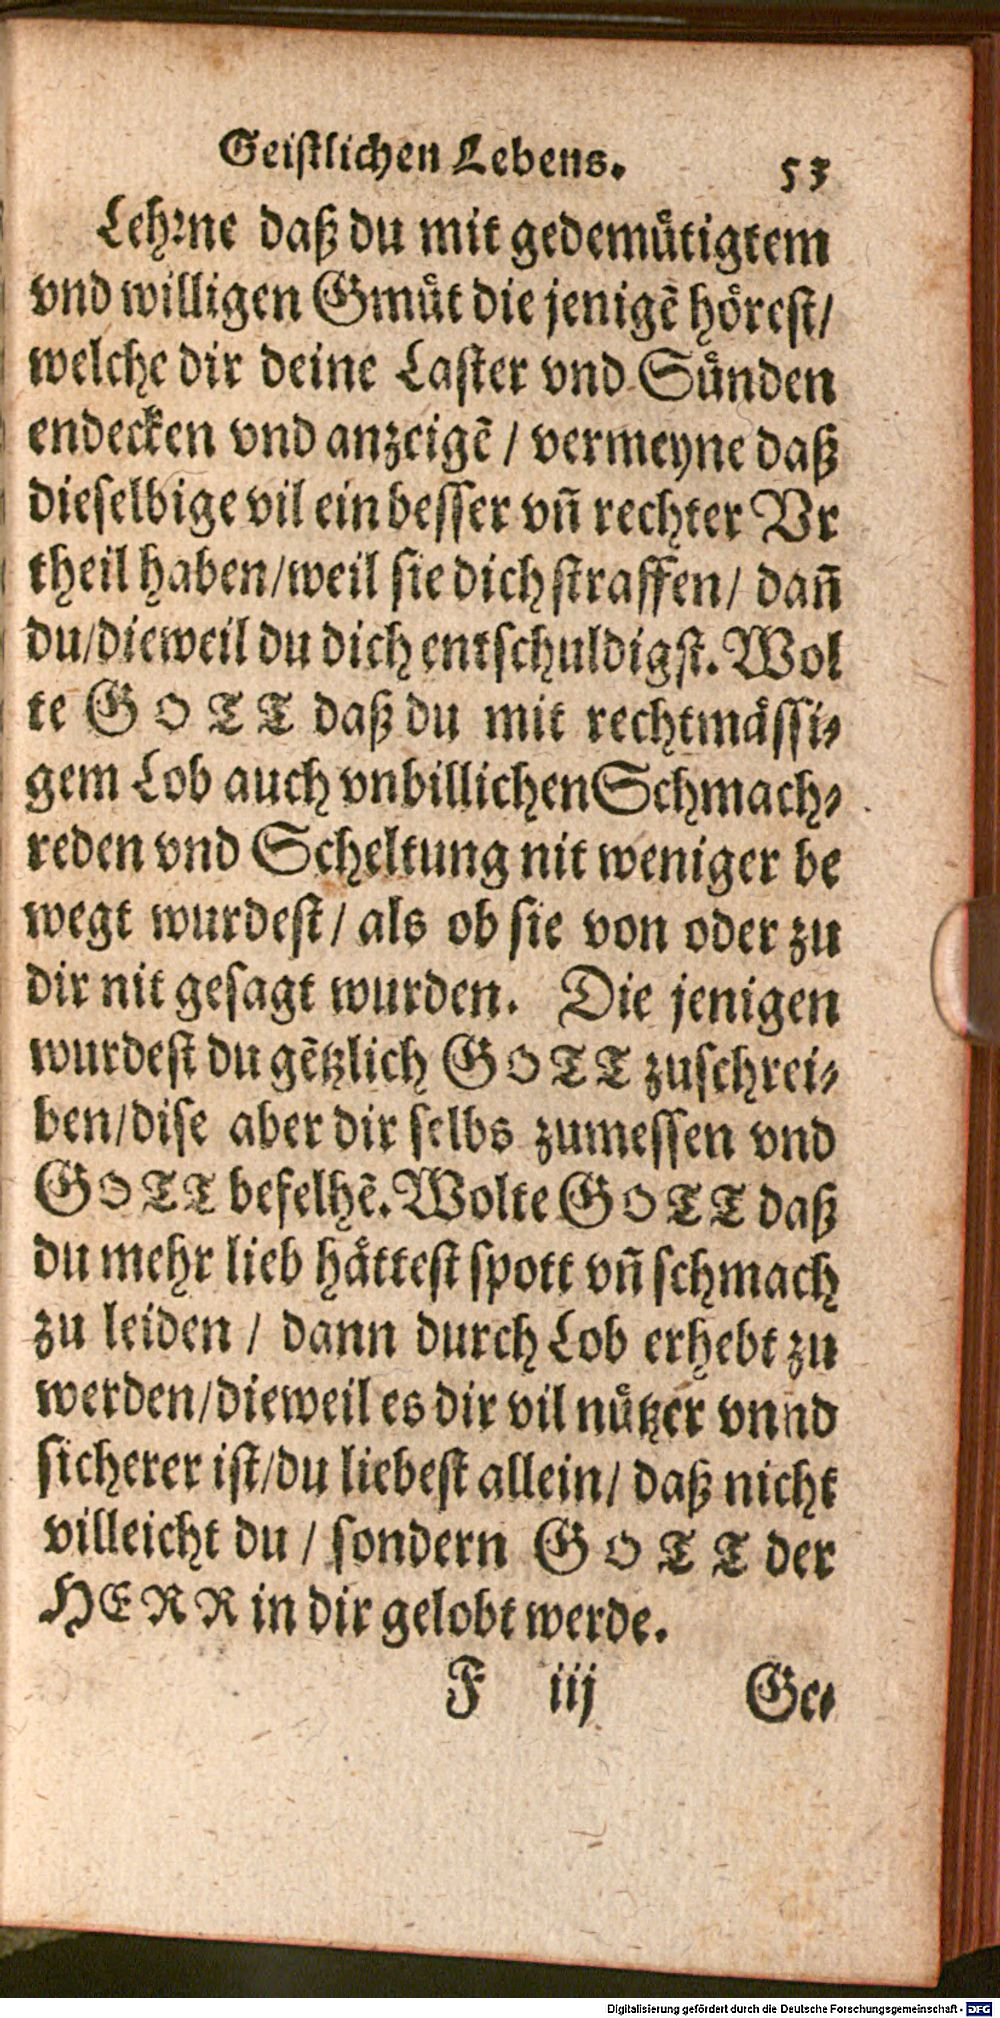 Geistlichen Lebens. 53
Lehrne daß du mit gedemuͤtigtem
vnd willigen Gmuͤt die jenigẽ hoͤrest/
welche dir deine Laster vnd Suͤnden
endecken vnd anzeigẽ / vermeyne daß
dieselbige vil ein besser vñ rechter Vr
theil haben/weil sie dich straffen/ dañ
du/dieweil du dich entschuldigst. Wol
te GOTT daß du mit rechtmaͤssi⸗
gem Lob auch vnbillichen Schmach⸗
reden vnd Scheltung nit weniger be
wegt wurdest/ als ob sie von oder zu
dir nit gesagt wurden. Die jenigen
wurdest du gẽtzlich GOTT zuschrei⸗
ben/dise aber dir selbs zumessen vnd
GOTT befelhẽ. Wolte GOTT daß
du mehr lieb haͤttest spott vñ schmach
zu leiden / dann durch Lob erhebt zu
werden/dieweil es dir vil nuͤtzer vnnd
sicherer ist/du liebest allein/ daß nicht
villeicht du / sondern GOTT der
HERR in dir gelobt werde.
F iij Ge⸗
Digitalisierung gefördert durch die Deutsche Forschungsgemeinschaft - DFG